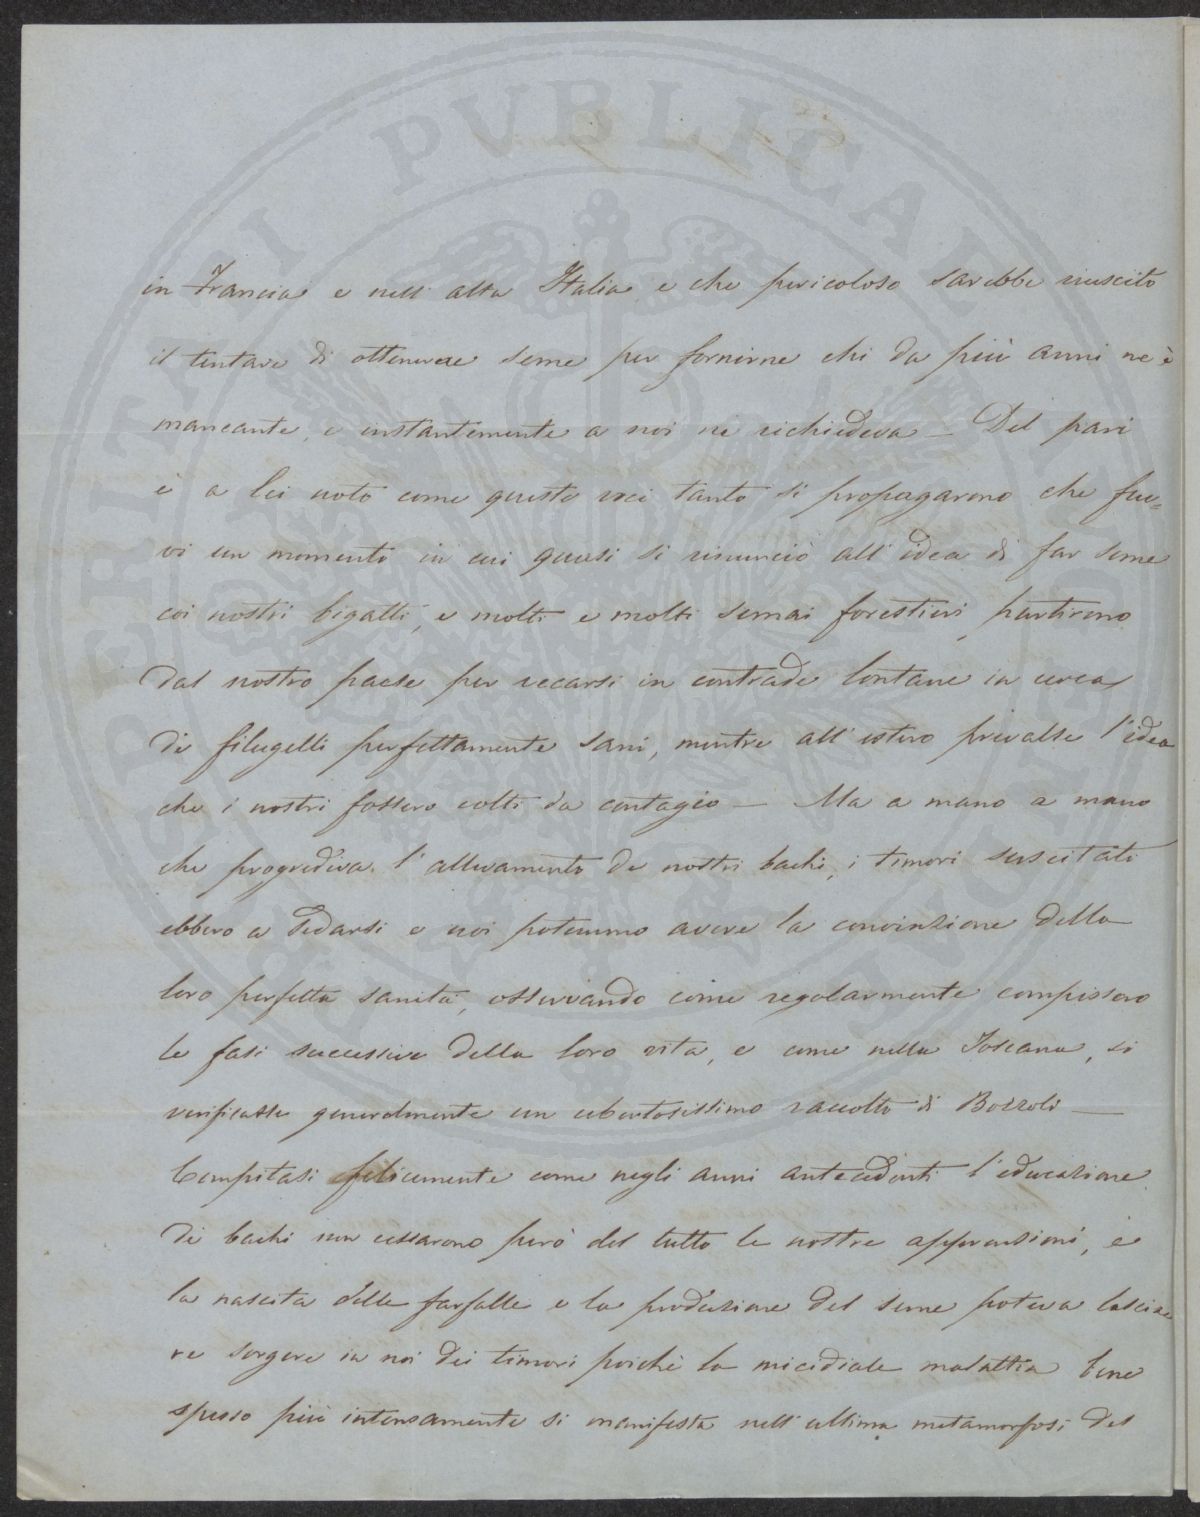 in Francia e nell'alta Italia e che pericoloso sarebbe riuscito
il tentare di ottenere seme per fornirne chi da più anni ne è
mancante, e instantemente a noi ne richiedeva — Del pari
è a lei noto come queste voci tanto si propagarono che fuv=
vi un momento in cui quasi si rinunciò all'idea di far seme
coi nostri bigatti, e molti e molti semai forestieri, partirono
dal nostro paese per recarsi in contrade lontane in cerca
di filugelli perfettamente sani, mentre all'estero prevalse l'idea
che i nostri fossero colti da contagio — Ma a mano a mano
che progrediva l'allevamento de nostri bachi, i timori suscitati
ebbero a sedarsi e noi potemmo avere la convinzione della
loro perfetta sanità, osservando come regolarmente compissero
le fasi successive della loro vita, e come nella Toscana, si
verificasse generalmente un ubertosissimo raccolto di Bozzoli —
Compitasi felicemente come negli anni antecedenti l'educazione
di bachi non cessarono però del tutto le nostre apprensioni, e
la nascita delle farfalle e la produzione del seme poteva lascia
re sorgere in noi dei timori poichè la micidiale malattia bene
spesso più intensamente si manifesta nell'ultima metamorfosi del
SPIRITI PUBLICAE